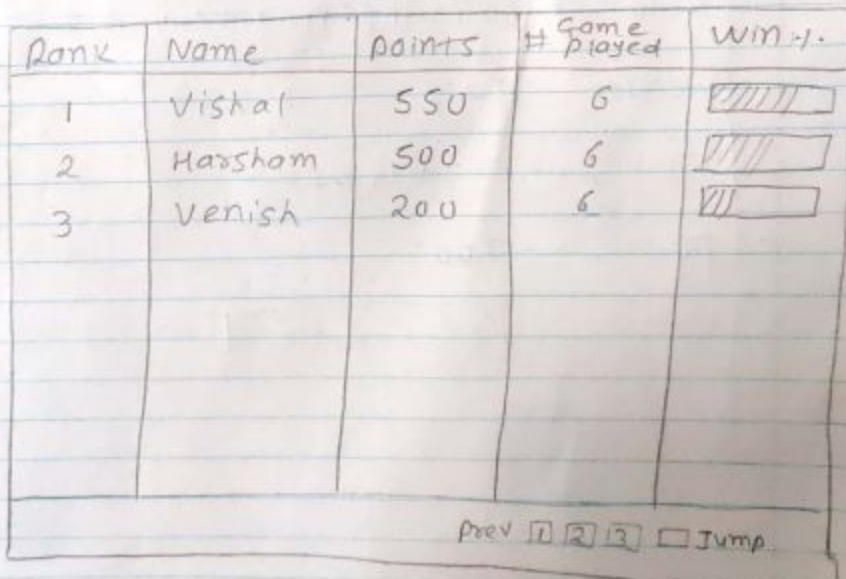 Rank Name Points # Game Played Win %
1 Vishal 550 6
2 Harsham 500 6
3 Venish 200 6
Prev 1 2 3 Jump